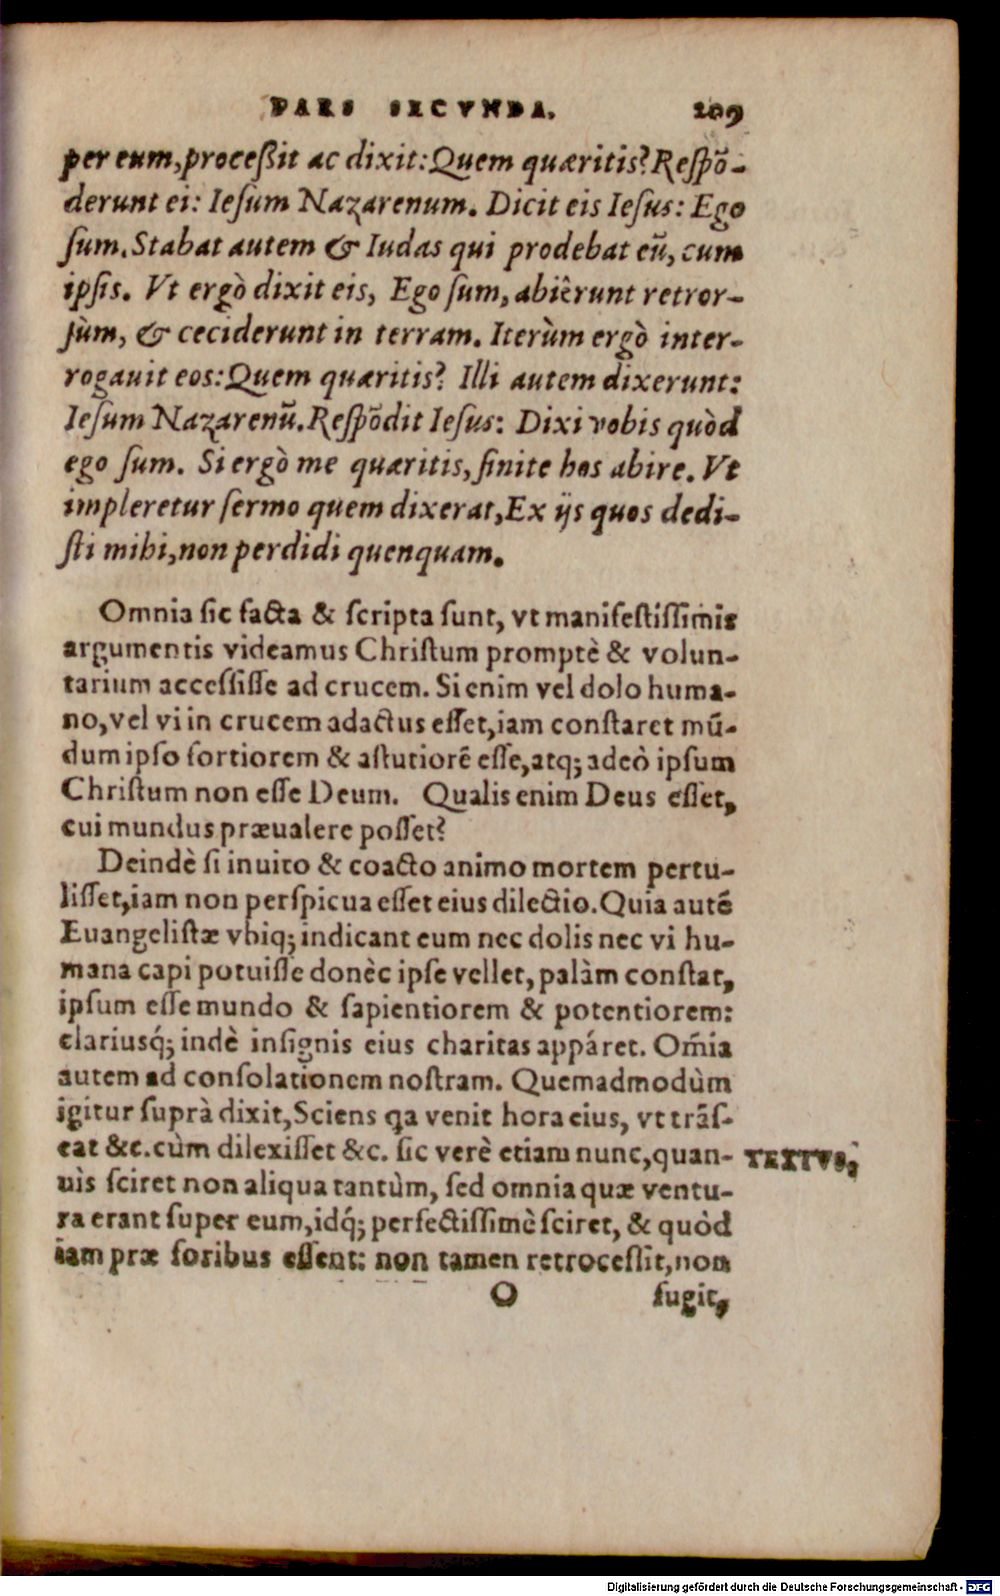 PARS SECVNDA. 209
per eum, proceßit ac dixit: Quem quæritis? Reſpõ-
derunt ei: Ieſum Nazarenum. Dicit eis Ieſus: Ego
ſum. Stabat autem & Iudas qui prodebat eũ, cum
ipſis. Vt ergò dixit eis, Ego ſum, abiêrunt retror-
ſùm, & ceciderunt in terram. Iterùm ergò inter-
rogauit eos: Quem quæritis? Illi autem dixerunt:
Ieſum Nazarenũ. Reſpõdit Ieſus: Dixi vobis quòd
ego ſum. Si ergò me quæritis, ſinite hos abire. Vt
impleretur ſermo quem dixerat, Ex ijs quos dedi-
ſti mihi, non perdidi quenquam.
Omnia ſic facta & ſcripta ſunt, vt manifeſtiſſimis
argumentis videamus Chriſtum promptè & volun-
tarium acceſſiſſe ad crucem. Si enim vel dolo huma-
no, vel vi in crucem adactus eſſet, iam conſtaret mũ-
dum ipſo fortiorem & aſtutiorẽ eſſe, atq; adeò ipſum
Chriſtum non eſſe Deum. Qualis enim Deus eſſet,
cui mundus præualere poſſet?
Deindè ſi inuito & coacto animo mortem pertu-
liſſet, iam non perſpicua eſſet eius dilectio. Quia autẽ
Euangeliſtæ vbiq; indicant eum nec dolis nec vi hu-
mana capi potuiſſe donèc ipſe vellet, palàm conſtat,
ipſum eſſe mundo & ſapientiorem & potentiorem:
clariusq́; indè inſignis eius charitas appáret. Om̃ia
autem ad conſolationem noſtram. Quemadmodùm
igitur ſuprà dixit, Sciens qa venit hora eius, vt trãſ-
eat &c. cùm dilexiſſet &c. ſic verè etiam nunc, quan- TEXTVS,
uis ſciret non aliqua tantùm, ſed omnia quæ ventu-
ra erant ſuper eum, idq́; perfectiſſimè ſciret, & quòd
iam præ foribus eſſent: non tamen retroceſſit, non
O fugit,
Digitalisierung gefördert durch die Deutsche Forschungsgemeinschaft - DFG